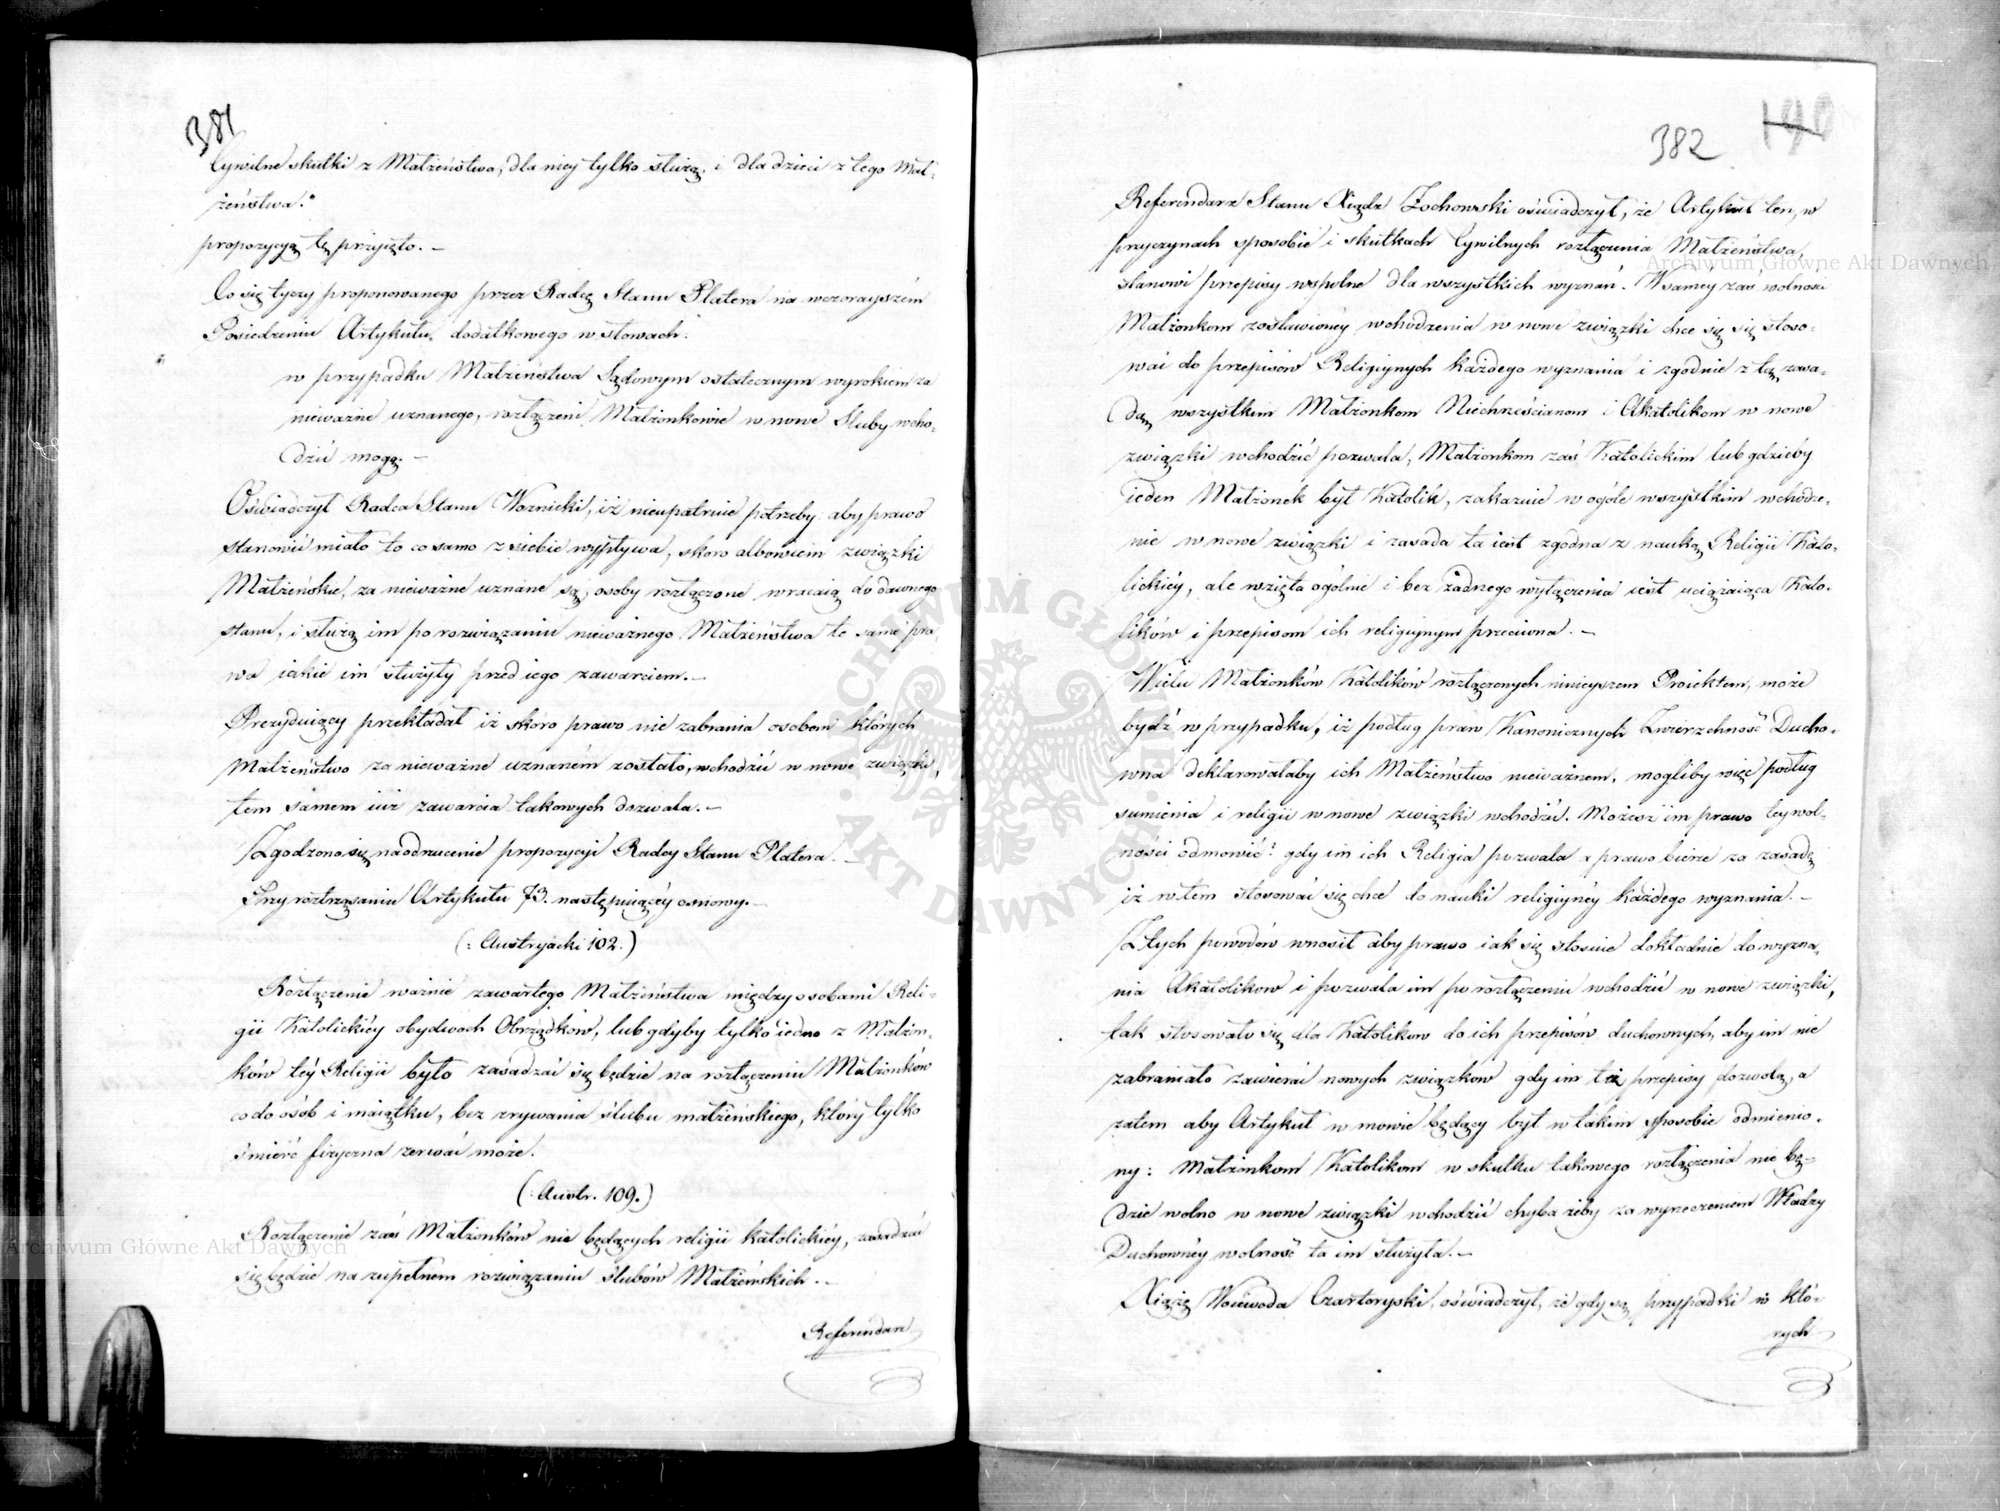 381
Cywilne skutki z Małżeństwa, dla niey tylko służą, i dla dzieci z tego Mał-
żeństwa."
propozycyą tę przyięto. —
Co się tyczy proponowanego przez Radcę Stanu Platera na wczorayszém
Posiedzeniu Artykułu dodatkowego w słowach:
w przypadku Małżeństwa Sądowym ostatecznym wyrokiem za
nieważne uznanego, rozłączeni Małżonkowie w nowe Śluby wcho-
dzić mogą. —
Oświadczył Radca Stanu Woznicki, iż nieupatruie potrzeby aby prawo
stanowić miało to co samo z siebie wypływa, skoro albowiem związki
Małżeńskie, za nieważne uznane są, osoby rozłączone wracaią do dawnego
stanu, i służą im po rozwiązaniu nieważnego Małżeństwa te same pra-
wa iakie im służyły przed iego zawarciem. —
Prezyduiący przekładał iż skoro prawo nie zabrania osobom których
Małżeństwo za nieważne uznaném zostało, wchodzić w nowe związki,
tem samem iuż zawarcia takowych dozwala. —
Zgodzono się na odrzucenie propozycyi Radcy Stanu Platera. —
Przy roztrząsaniu Artykułu 73. następuiącéy osnowy. —
(: Austryacki 102.)
Rozłączenie ważnie zawartego Małżeństwa między osobami Reli-
gii Katolickiéy obydwóch Obrządków, lub gdyby tylko iedno z Małżon-
ków téy Religii było zasadzać się będzie na rozłączeniu Małżonków
co do osób i maiątku, bez zrywania ślubu małżeńskiego, który tylko
śmierć fizyczna zerwać może.
(: Austr. 109.)
Rozłączenie zaś Małżonków nie będących religii katolickiéy, zasadzać
się będzie na zupełnem rozwiązaniu ślubów Małżeńskich. —
Referendarz
382
190
Referendarz Stanu Xiądz Żochowski oświadczył, że Artykuł ten, w
przyczynach sposobie i skutkach Cywilnych rozłączenia Małżeństwa,
stanowi przepisy wspólne dla wszystkich wyznań. W samey zaś wolności
Małżonkom zostawionéy wchodzenia w nowe związki chce się się stoso-
wać do przepisów Religiynych każdego wyznania i zgodnie z tą zasa-
dą wszystkim Małżonkom Niechrześcianom i Akatolikom w nowe
związki wchodzić pozwala, Małżonkom zaś Katolickim lub gdzieby
ieden Małżonek był Katolik, zakazuie w ogóle wszystkim wchodze-
nie w nowe związki i zasada ta iest zgodna z nauką Religii Kato-
lickiéy, ale wzięta ogólnie i bez żadnego wyłączenia iest uciążaiąca Kato-
lików i przepisom ich religiynym przeciwna. —
Wielu Małżonków Katolików rozłączonych ninieyszem Proiektem, może
bydź w przypadku, iż podług praw Kanonicznych Zwierzchność Ducho-
wna deklarowałaby ich Małżeństwo nieważnem, mogliby więc podług
sumienia i religii w nowe związki wchodzić. Możesz im prawo tey wol-
ności odmówić? gdy im ich Religia pozwala a prawo bierze za zasadę
iż w tem stosować się chce do nauki religiynéy każdego wyznania. —
Z tych powodów wnosił aby prawo iak się stosuie dokładnie do wyzna-
nia Akatolików i pozwala im po rozłączeniu wchodzić w nowe związki,
tak stosowało się dla Katolików do ich przepisów duchownych, aby im nie
zabraniało zawierać nowych związków gdy im też przepisy dozwolą, a
zatem aby Artykuł w mowie będący był w takim sposobie odmienio-
ny: Małżonkom Katolikom w skutku takowego rozłączenia nie bę-
dzie wolno w nowe związki wchodzić chyba żeby za wyrzeczeniem Władzy
Duchownéy wolność ta im służyła. —
Xiążę Woiewoda Czartoryski, oświadczył, że gdy są przypadki w któ-
rych
Archiwum Główne Akt Dawnych
Archiwum Główne Akt Dawnych
ARCHIWUM GŁÓWNE AKT DAWNYCH